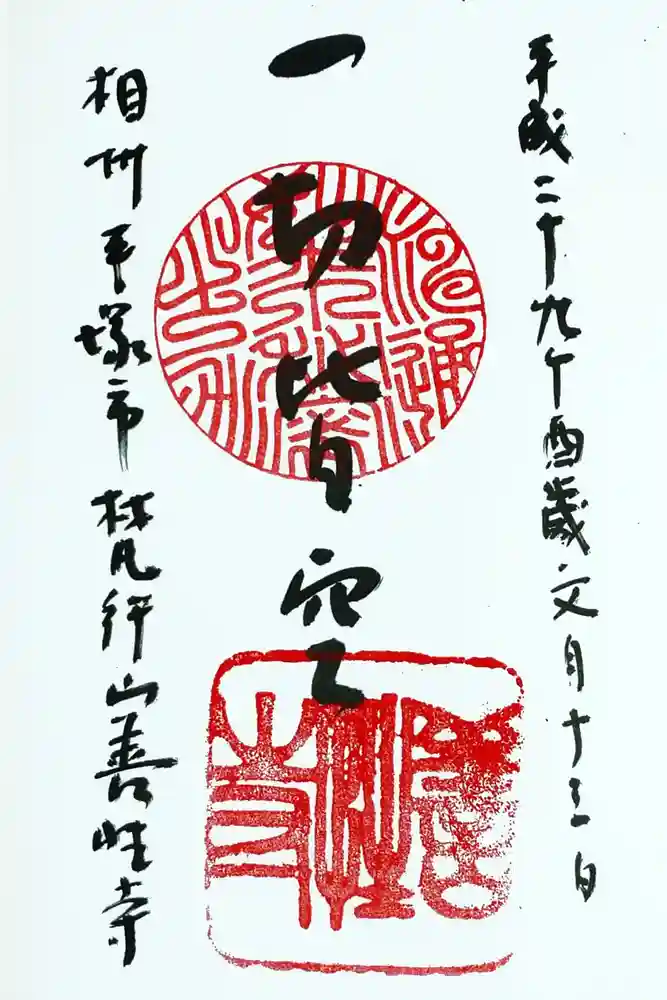 平成二十九年酉歳文月十三日
一切皆空
相州平塚市梵行山善性寺
善性寺